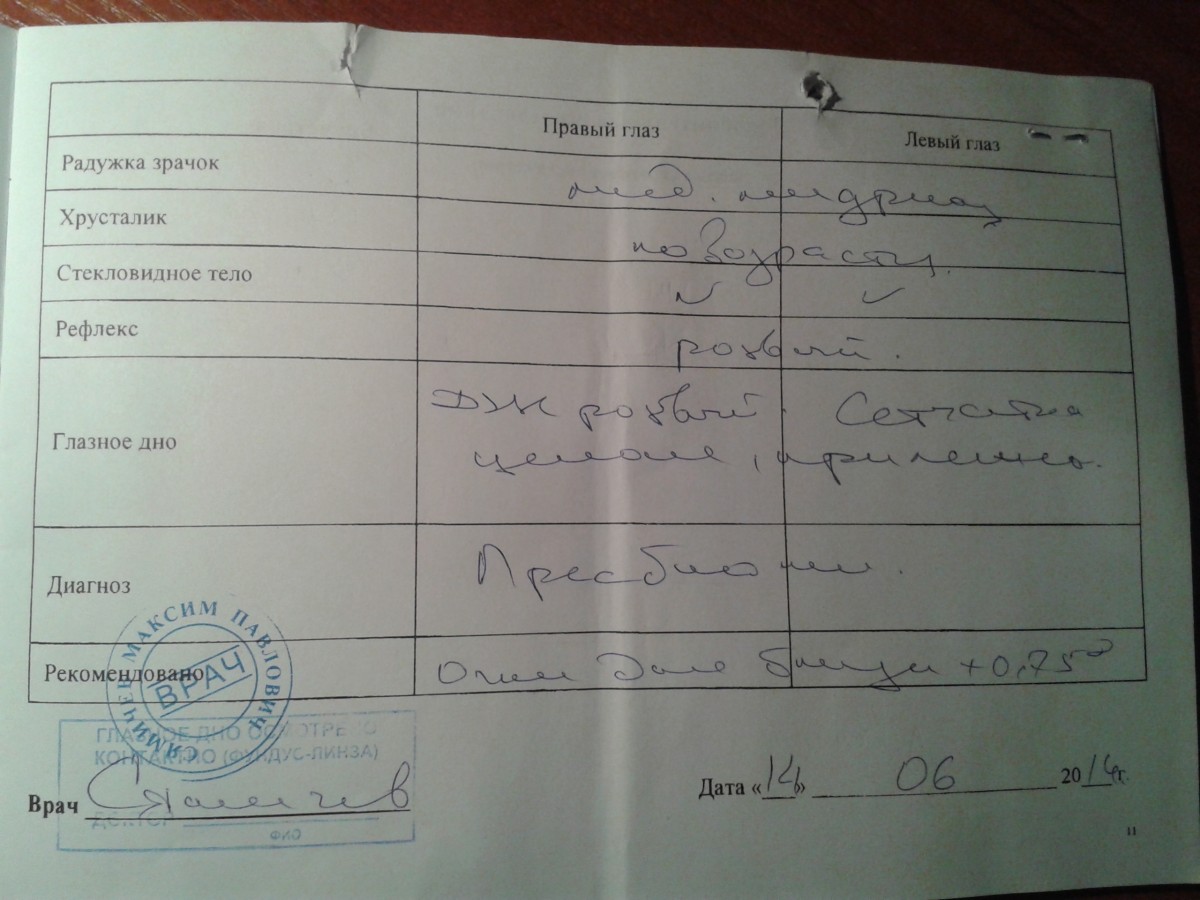 Правый глаз Левый глаз
Радужка зрачок
мед. мидриаз
Хрусталик
по возрасту.
Стекловидное тело
Рефлекс
розовый.
ДЗН розовый. Сетчатка
Глазное дно
целая, прилежит.
Диагноз
Пресбиопия.
Рекомендовано
Очки для близи +0,75
СЯМИЧЕВ МАКСИМ ПАВЛОВИЧ
ВРАЧ
ГЛАЗНОЕ ДНО ОСМОТРЕНО
КОНТАКТНО (ФУНДУС-ЛИНЗА)
Врач Сямичев
Дата «14» 06 2014г.
ДОКТОР
ФИО
11